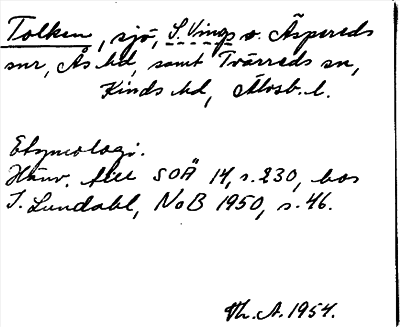 Tolken, sjö, S. Vings o. Äspereds
snr, Ås hd, samt Tvärreds sn,
Kinds hd, Älvsb. l.
Etymologi.
Hänv. till SOÄ 14, s. 230, hos
I. Lundahl, NoB 1950, s. 46.
Th. A. 1954.